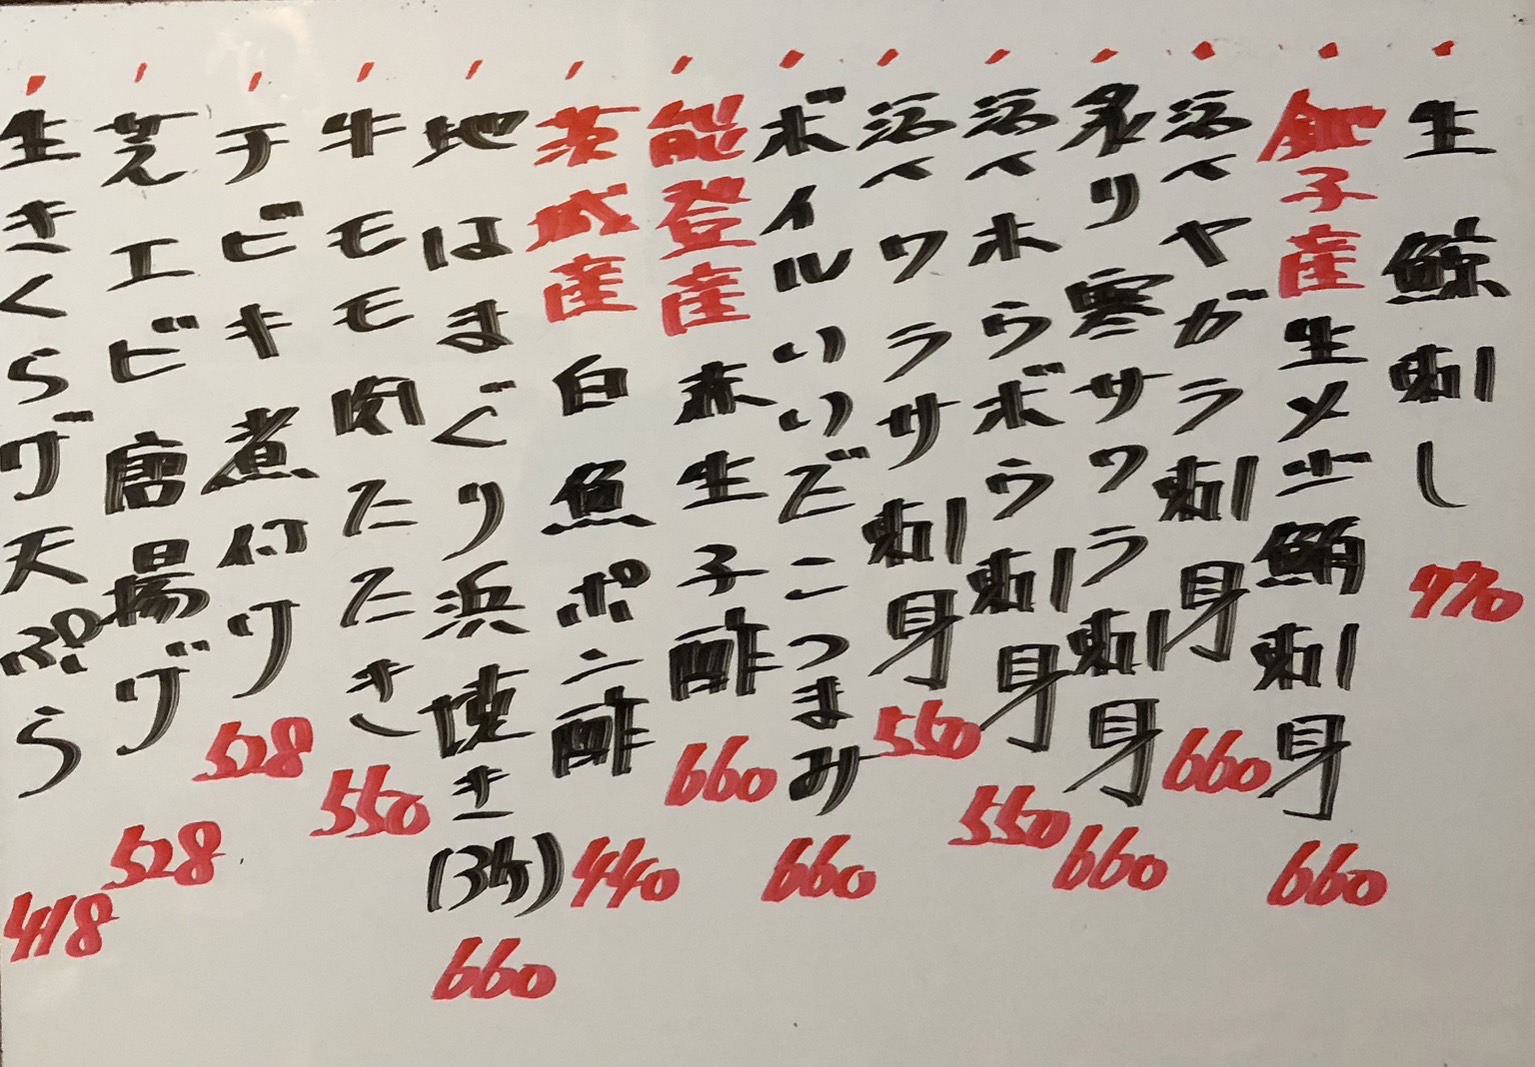 ・生鯨刺し 770
・銚子産生メジ鮪刺身 660
・活〆ヤガラ刺身 660
・炙り寒サワラ刺身 660
・活〆ホウボウ刺身 550
・活〆ワラサ刺身 550
・ボイルいいだこつまみ 660
・能登産赤生子酢 660
・茨城産白魚ポン酢 440
・地はまぐり浜焼き(3ケ) 660
・牛モモ肉たたき 550
・テビキ煮付ケ 528
・芝エビ唐揚ゲ 528
・生きくらゲ天ぷら 418